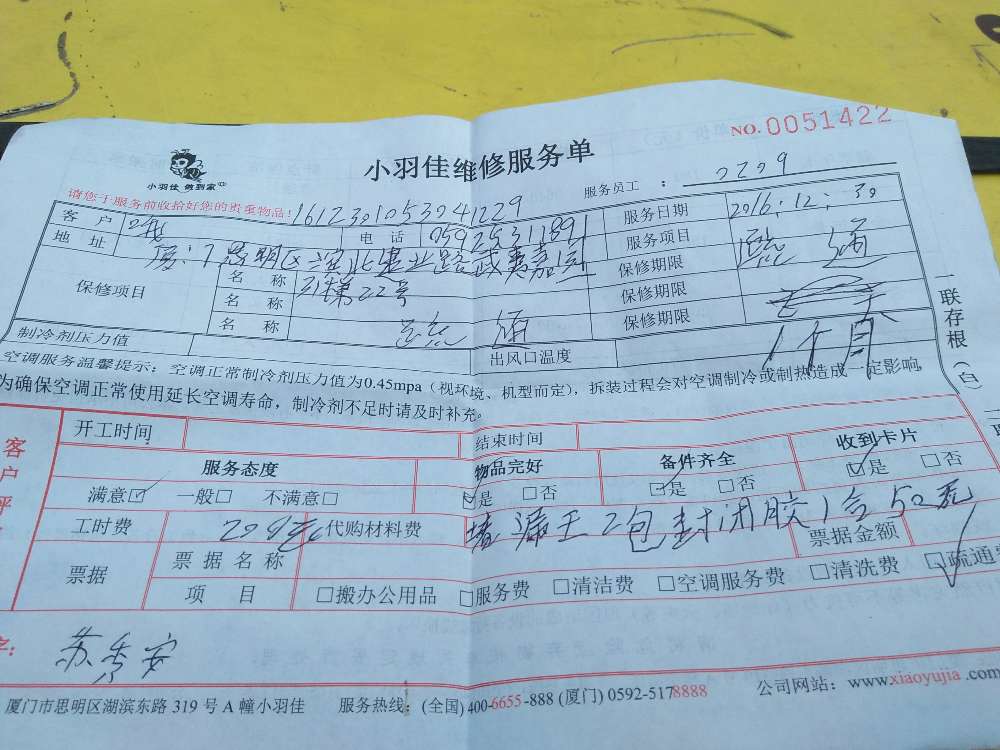 NO. 0051422
小羽佳维修服务单
小羽佳 做到家
服务员工 : 2229
请您于服务前收拾好您的贵重物品! 1612301053041229
客 户 电 话 05925311891 服务日期 2016.12.30
地 址 思明区 服务项目
保修项目 名 称 22号 保修期限
名 称 保修期限
名 称 保修期限 1个月
制冷剂压力值 出风口温度
空调服务温馨提示: 空调正常制冷剂压力值为0.45mpa (视环境、机型而定), 拆装过程会对空调制冷或制热造成一定影响,
为确保空调正常使用延长空调寿命, 制冷剂不足时请及时补充。
一联存根 (白)
开工时间 结束时间
服务态度 物品完好 备件齐全 收到卡片
满意☑ 一般□ 不满意□ ☑是 □否 ☑是 □否 ☑是 □否
工时费 代购材料费 堵漏王2包封闭胶1合50元
票据金额
票据 票据名称
项 目 □搬办公用品 □服务费 □清洁费 □空调服务费 □清洗费 ☑疏通费
苏秀安
厦门市思明区湖滨东路 319 号 A 幢小羽佳 服务热线: (全国) 400-6655-888 (厦门) 0592-5178888 公司网站: www.xiaoyujia.com